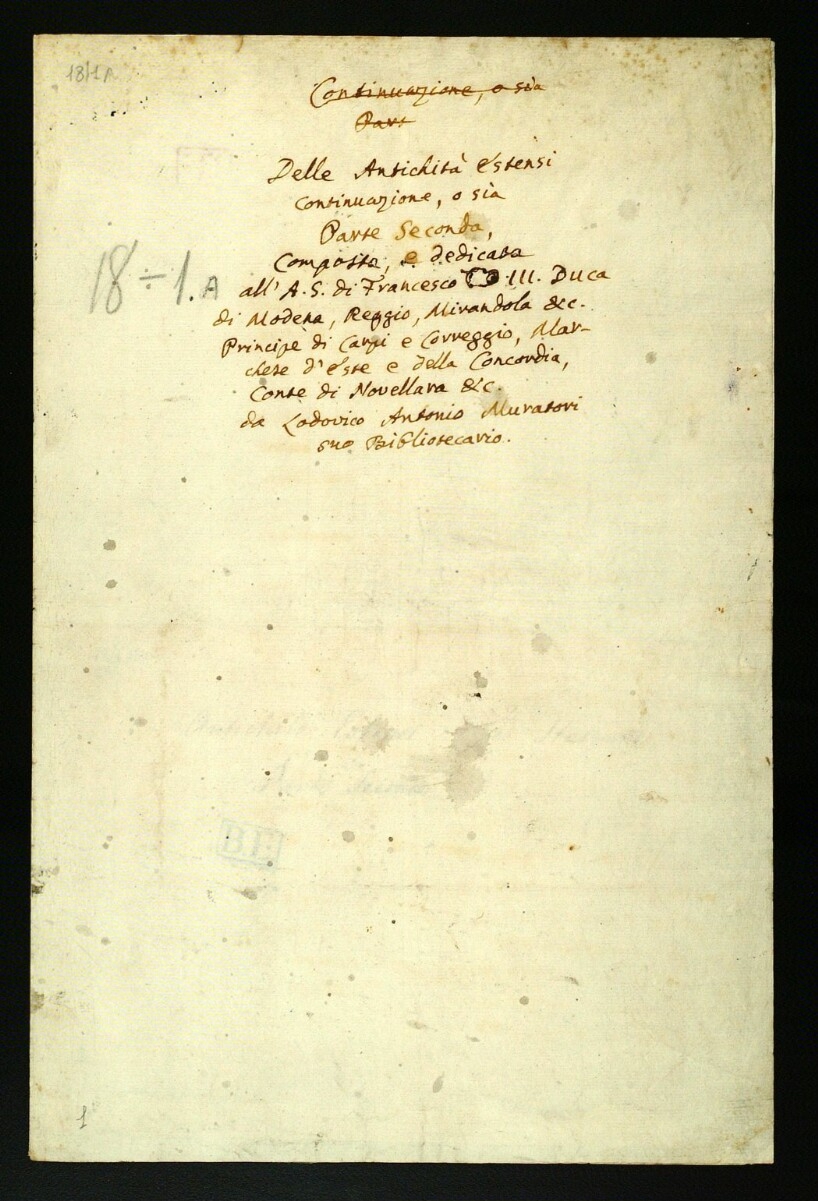 18/1A
Continuazione, o sia
Part
Delle Antichità Estensi
Continuazione, o sia
Parte Seconda,
Composta, e dedicata
18÷1.A
all' A.S. di Francesco III. Duca
di Modena, Reggio, Mirandola &c.
Principe di Carpi e Correggio, Mar-
chese d'Este e della Concordia,
Conte di Novellara &c.
da Lodovico Antonio Muratori
suo Bibliotecario.
1